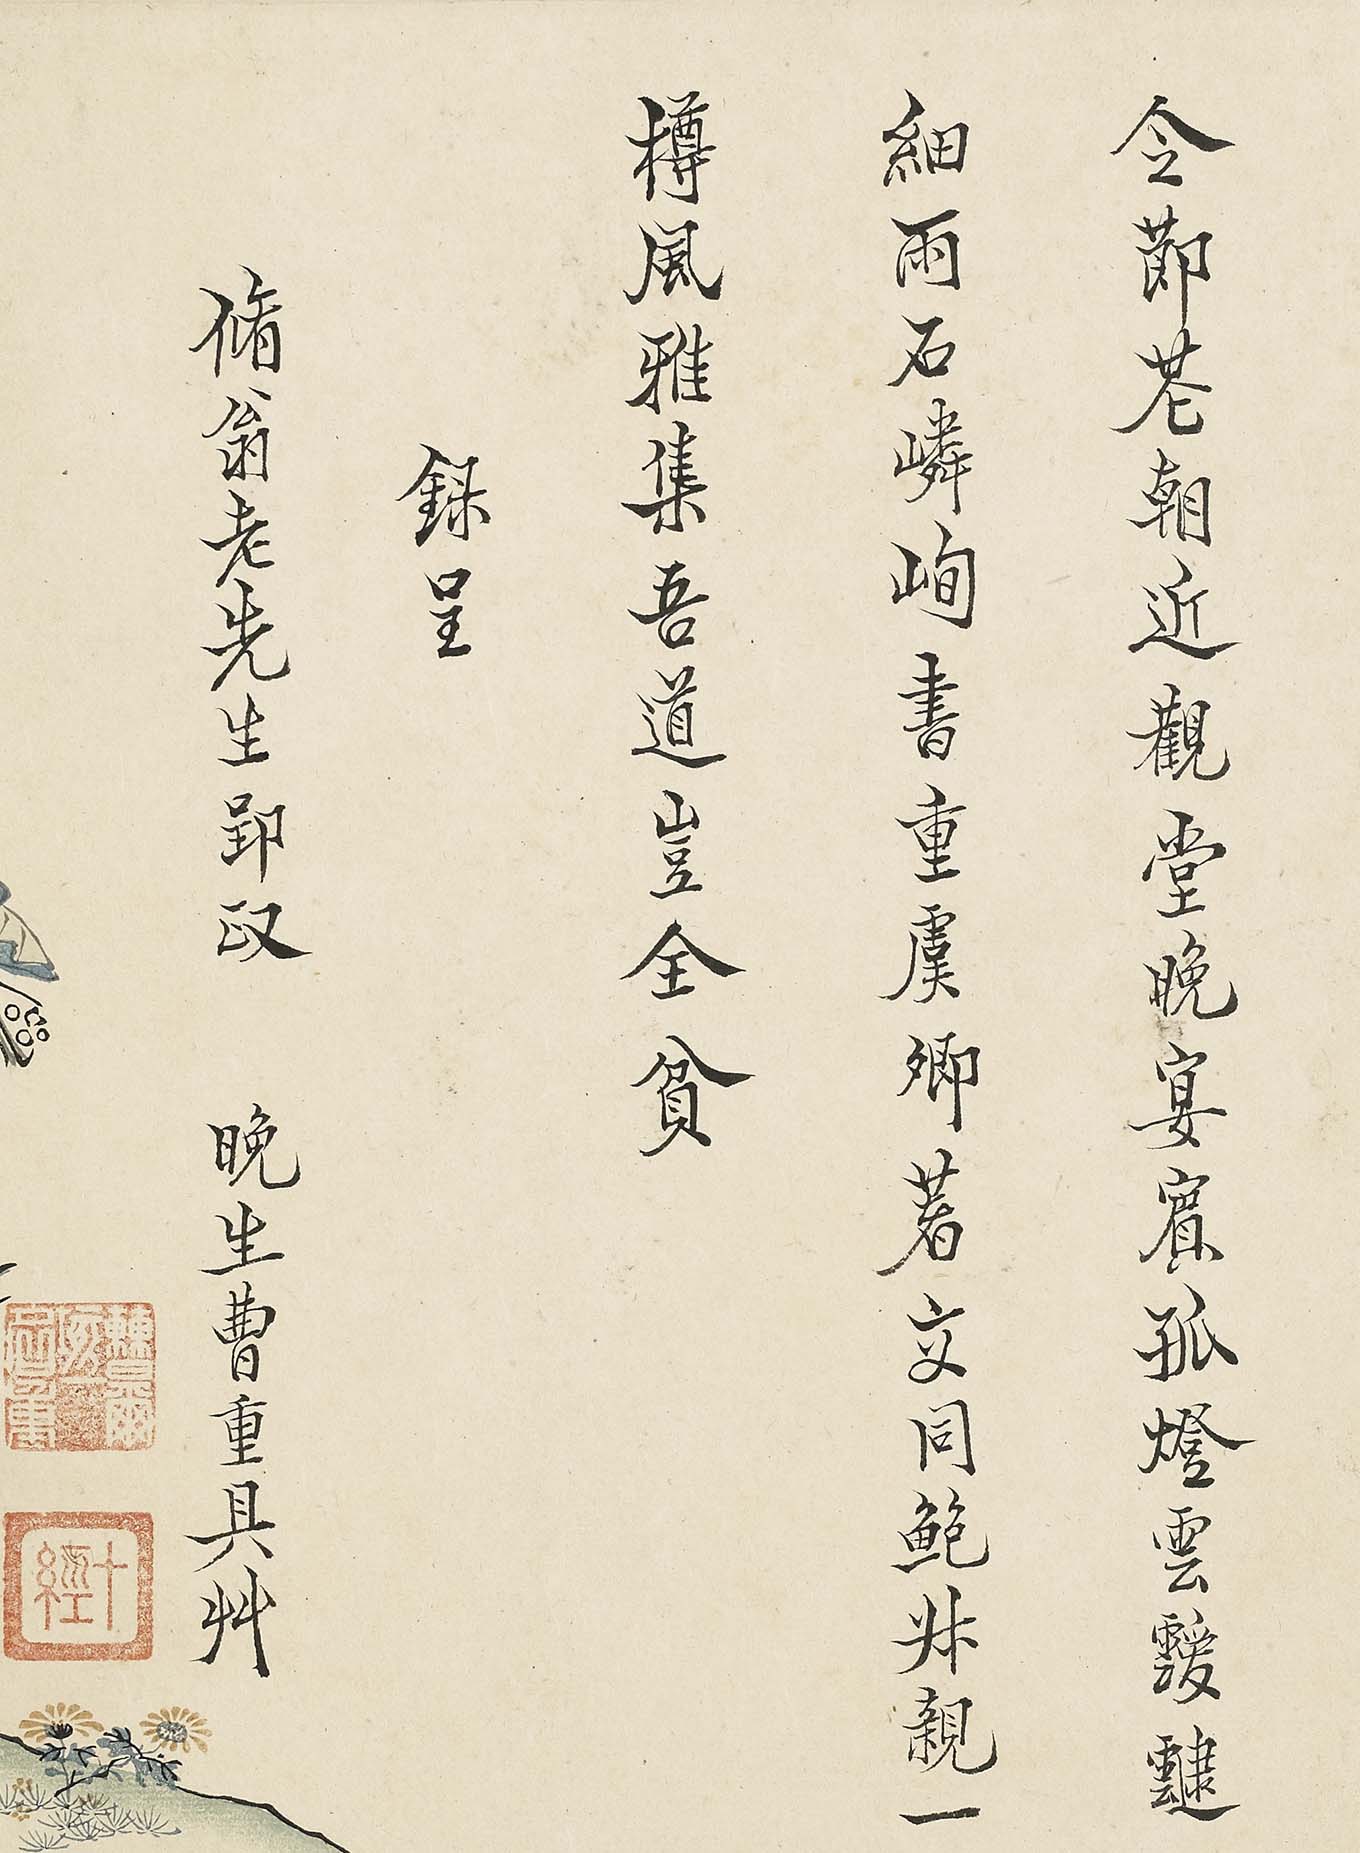 令節花朝近觀堂晚宴賔孤燈雲靉靆
細雨石嶙峋書重虞卿著交同鮑叔親一
樽風雅集吾道豈全貧
録呈
脩翁老先生郢政 晚生曹重具艸
十經